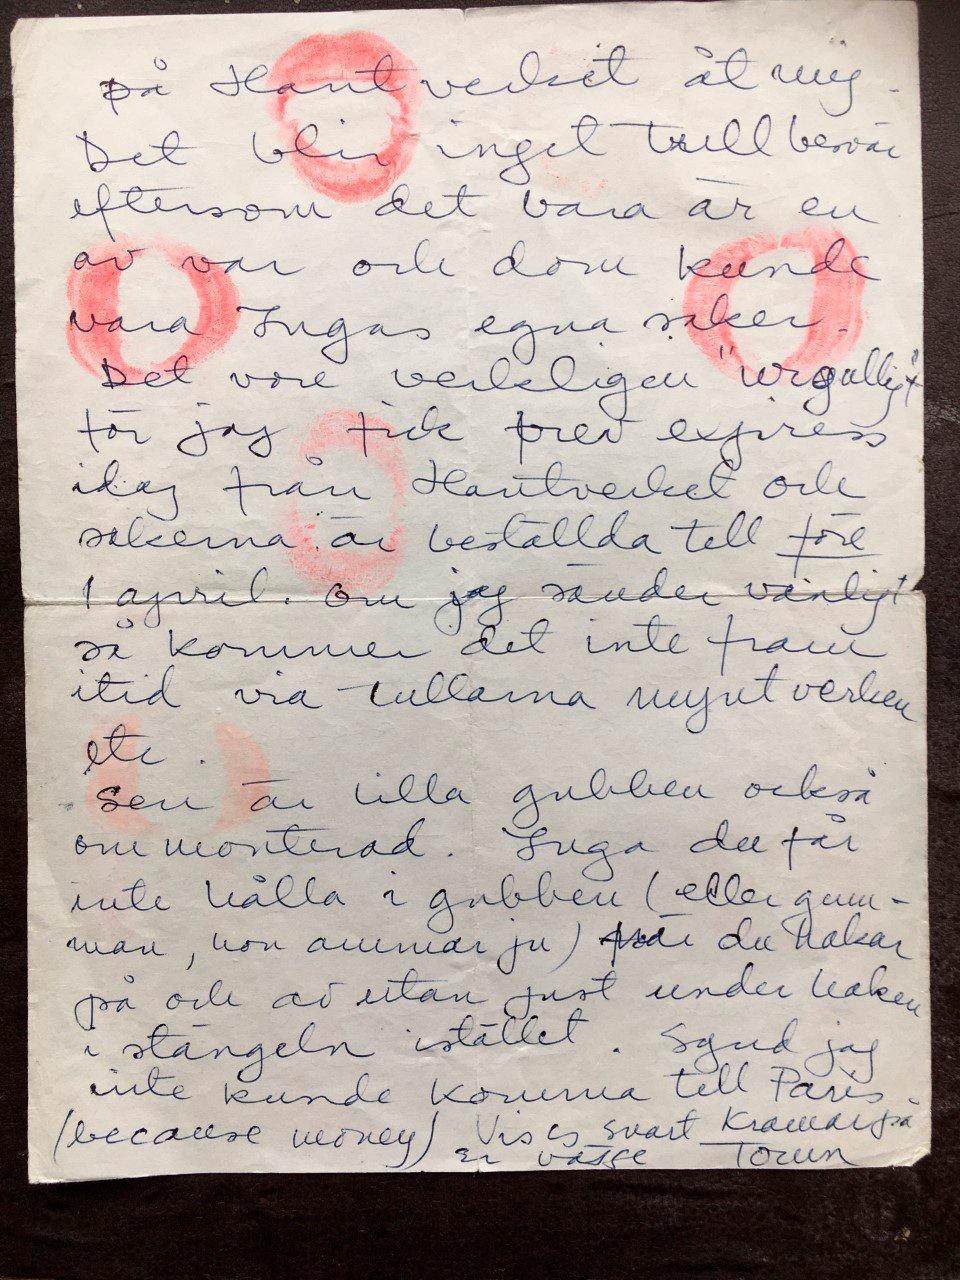 på Hantverket åt mig.
Det blir inget tullbesvär
eftersom det bara är en
av var och dom kunde
vara Ingas egna saker.
Det vore verkligen "urgulligt"
för jag fick brev express
idag från Hantverket och
sakerna är beställda till före
1 april. Om jag sänder vanligt
så kommer det inte fram
itid via tullarna myntverken
etc.
Sen är lilla gubben också
ommonterad. Inga du får
inte hålla i gubben (eller gum-
man, hon ammar ju) när du hakar
på och av utan just under haken
i stängeln istället. Synd jag
inte kunde komma till Paris
(because money) Vi ses snart Kramar på
Er bägge Torun